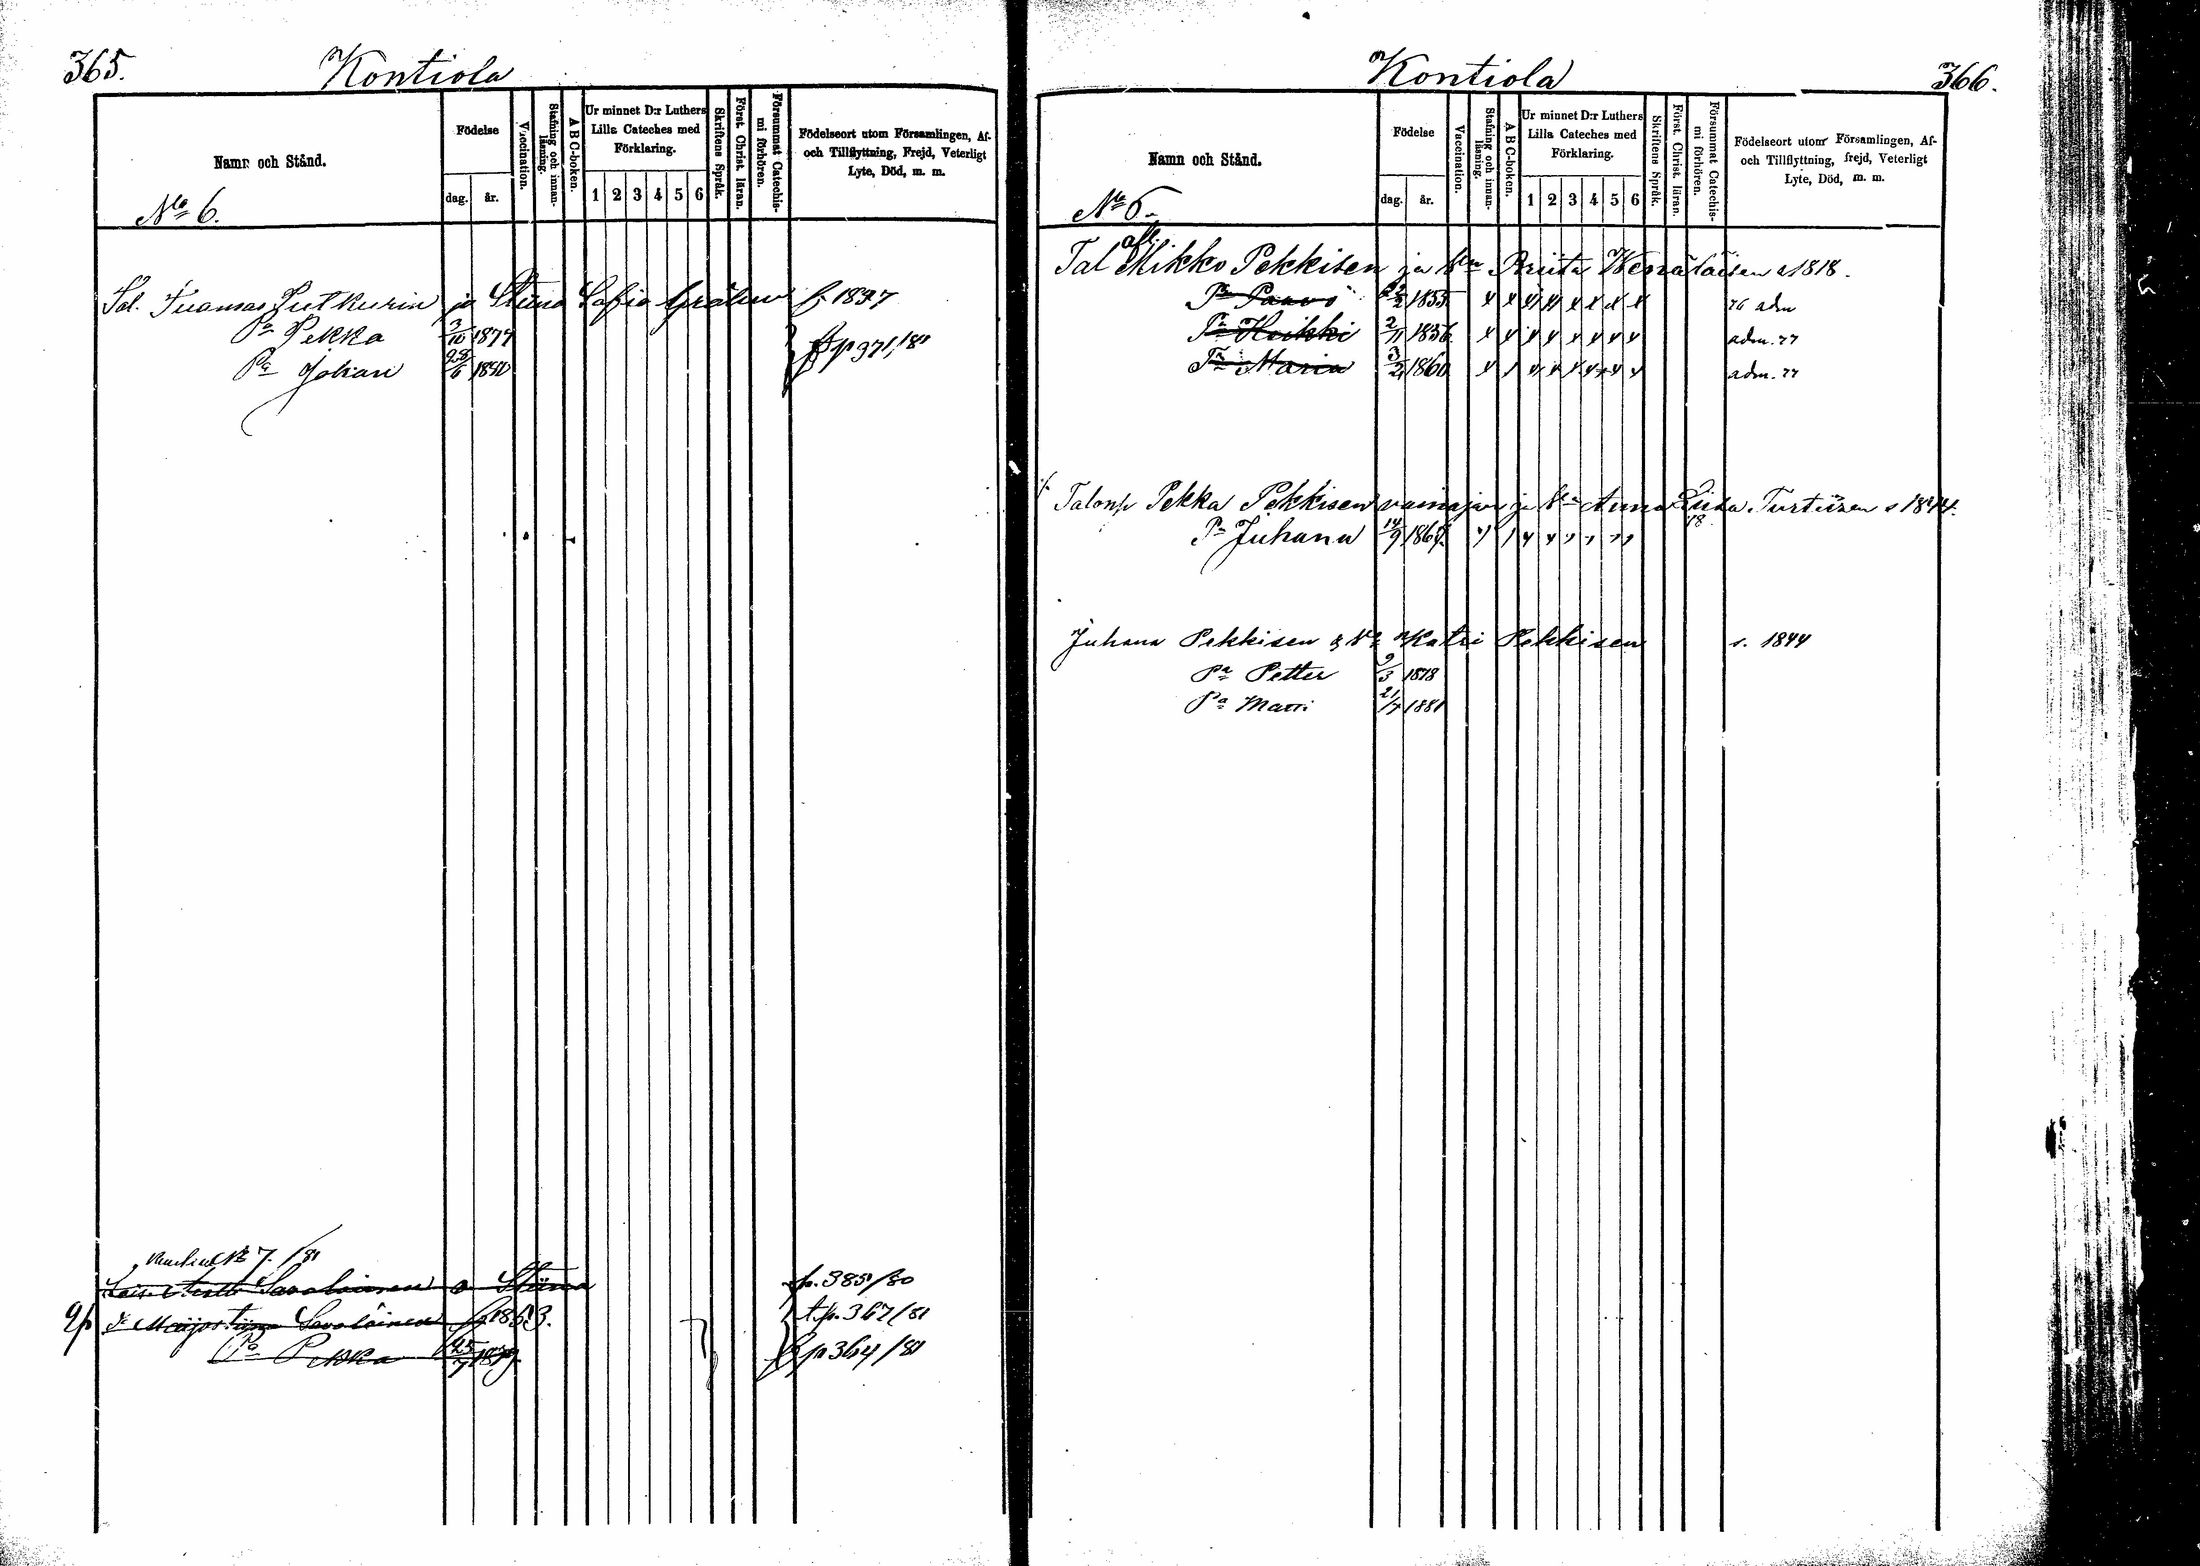 365.
Kontiola
Namn och Stånd.
Födelse
dag. år.
Vaccination.
Stafning och innanläsning.
A B C-boken.
Ur minnet D:r Luthers
Lilla Cateches med
Förklaring.
1 2 3 4 5 6
Skriftens Språk.
Först. Christ. läran.
Försummat Catechismi förhören.
Födelseort utom Församlingen, Af-
och Tillflyttning, Frejd, Veterligt
Lyte, Död, m. m.
No 6.
Tuomas Putkurin ja Stiina Sofia f. 1837
Pa Pekka 3/10 1877
p 371/81
Pa Johan 1880
No 7. /81
Savolainen o Stiina p. 385/80
Savolainen t. p. 367/81
Pa Pekka p 364/81
Kontiola
366.
Namn och Stånd.
Födelse
dag. år.
Vaccination.
Stafning och innanläsning.
A B C-boken.
Ur minnet D:r Luthers
Lilla Cateches med
Förklaring.
1 2 3 4 5 6
Skriftens Språk.
Först. Christ. läran.
Försummat Catechismi förhören.
Födelseort utom Församlingen, Af-
och Tillflyttning, frejd, Veterligt
Lyte, Död, m. m.
No 6.
Tal Mikko Pekkisen ja Riita Wenäläisen s 1818.
Pa Paavo 1855 x x x x x x x x 76 adm
Pa Heikki 2/11 1856 x x x x x x x x adm. 77
Tr Maria 3/2 1860 adm. 77
Pekka Pekkisen vainajan ja Anna Liisa Turtiisen s 1844.
Pa Juhana 14/9
Juhana Pekkisen & Va Katri Pekkisen s. 1844
Pa Petter 9/3 1878
Pa Matti 21/7 1881